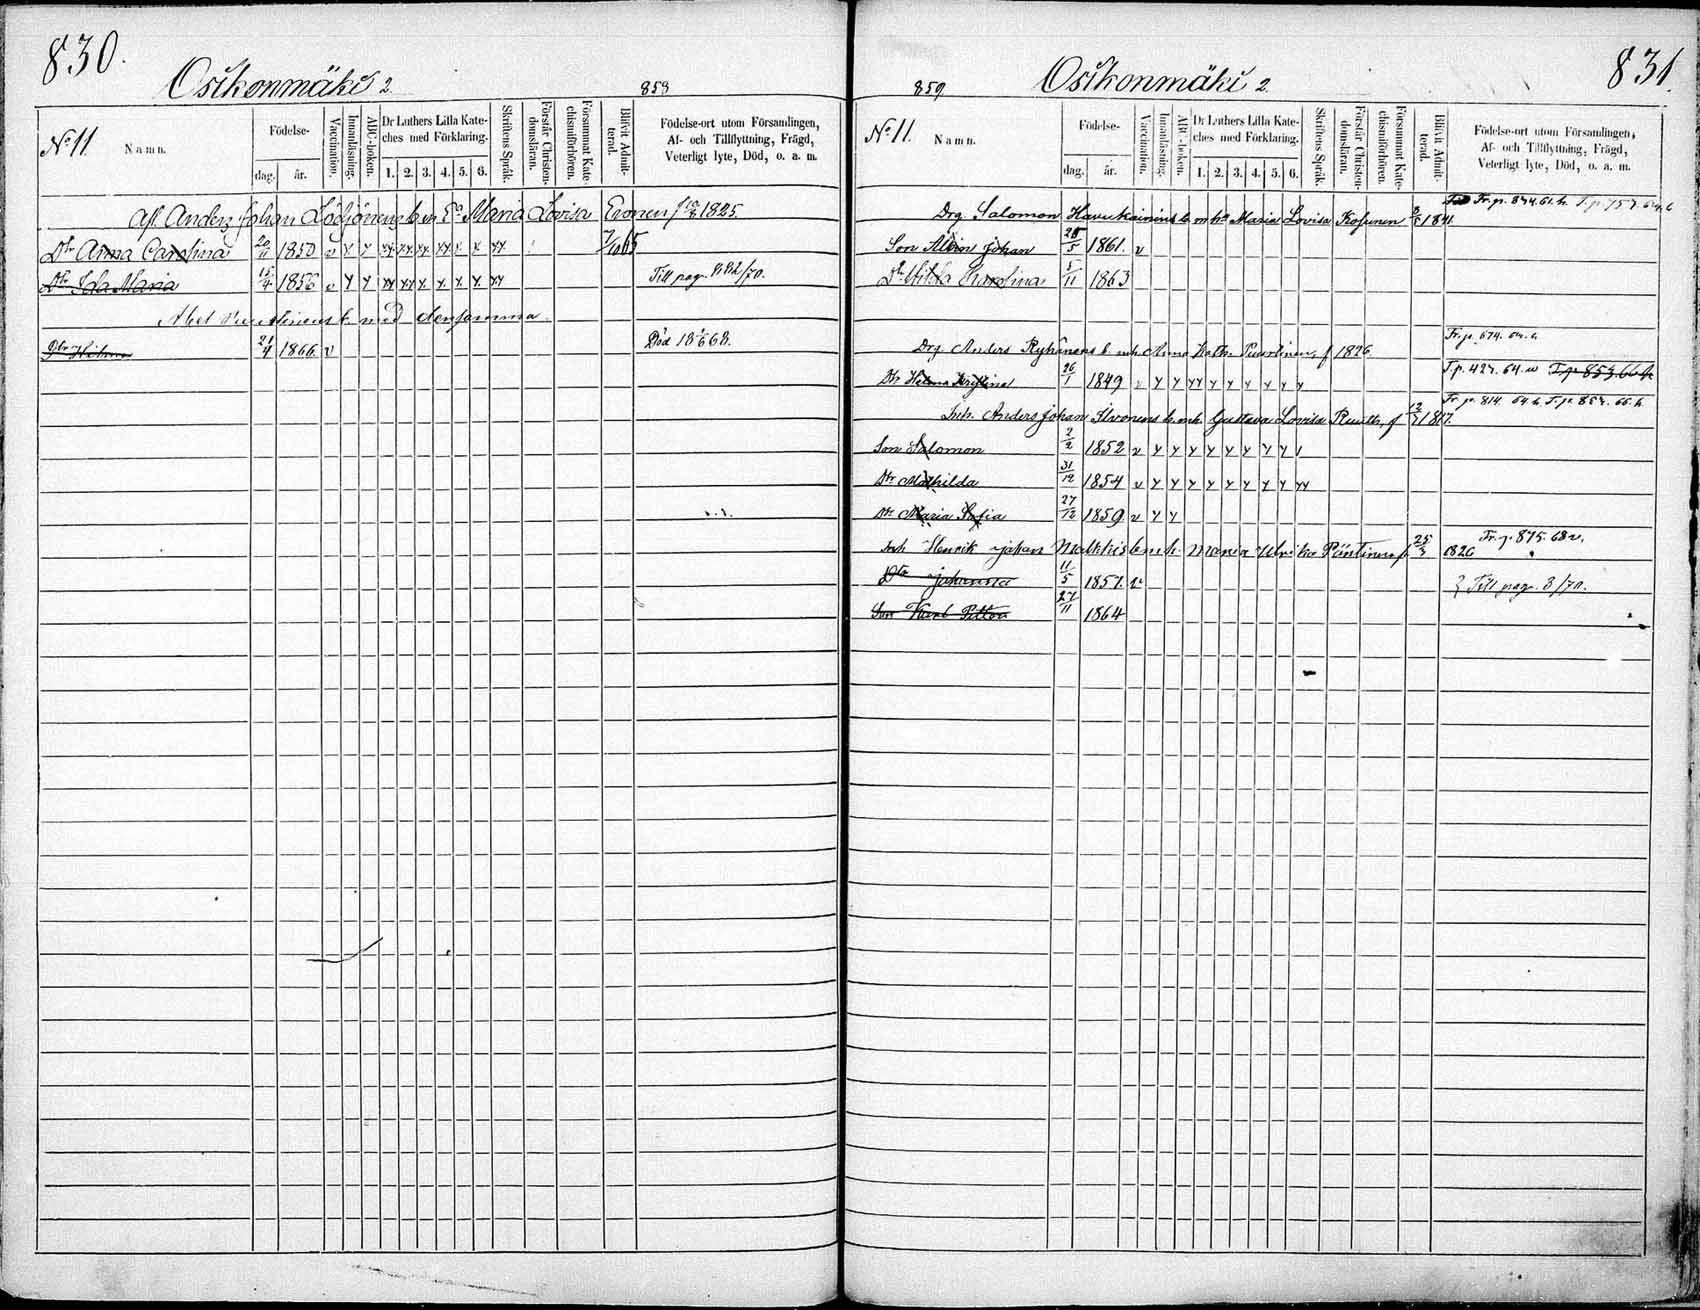 830.
Osikonmäki 2
858
No 11. Namn.
Födelse-
dag. år.
Vaccination.
Innanläsning.
ABC-boken.
Dr Luthers Lilla Kate-
ches med Förklaring.
1. 2. 3. 4. 5. 6.
Skriftens Språk.
Förstår Christen-
domsläran.
Försummat Kate-
chismiförhören.
Blifvit Admit-
terad.
Födelse-ort utom Församlingen,
Af- och Tillflyttning, Frägd,
Veterligt lyte, Död, o. a. m.
Anders Johan Maria Lovisa 1825.
Dtr Anna Carolina 20/11 1850 v 7/10 65
Dtr Ida Maria 15/4 1856 v Till pag. 882/70.
Abel med densamma
Dtr Hilma 21/4 1866 v Död 18 68.
831.
859
Osikonmäki 2
No 11. Namn.
Födelse-
dag. år.
Vaccination.
Innanläsning.
ABC-boken.
Dr Luthers Lilla Kate-
ches med Förklaring.
1. 2. 3. 4. 5. 6.
Skriftens Språk.
Förstår Christen-
domsläran.
Försummat Kate-
chismiförhören.
Blifvit Admit-
terad.
Födelse-ort utom Församlingen,
Af- och Tillflyttning, Frägd,
Veterligt lyte, Död, o. a. m.
Drg. Salomon Havukainens Maria Lovisa Kosunen 1841. Fr. p. 874. 61. h.
Son Albin Johan 25/5 1861. v
Dtr Carolina 5/11 1863
Drg. Anders Ryhänens Anna Kath. Puurtinen, f 1826 Fr. p. 674.
Dtr Helena Kristina 26/1 1849 v T. p. 427. 64. T. p. 853. 66
Inh. Anders Johan Ilvonens Gustava Lovisa f 12/7 1817. Fr. p. 814. 64. h. T. p. 857. 65. h.
Son Salomon 2/2 1852 v
Dtr Mathilda 31/12 1854 v
Dtr Maria Sofia 27/12 1859 v
Inh Henrik Johan Maria Ulrika Pöntinen f. 25/3 1826 Fr. p. 875. 68
Dtr Johanna 11/5 1857. v Till pag. 3/70.
Son Karl Petter 27/11 1864